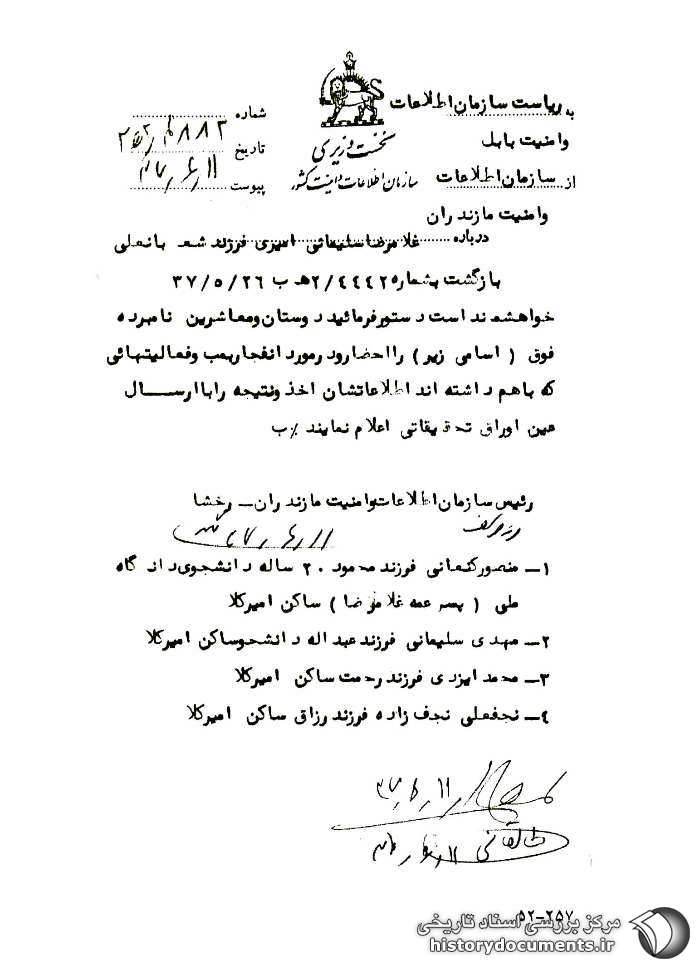 به ریاست سازمان اطلاعات
وامنیت بابل
از سازمان اطلاعات
وامنیت مازندران
نخست وزیری
سازمان اطلاعات و امنیت کشور
شماره
تاریخ ۱۱
پیوست
درباره غلامرضا سلیمانی امیری فرزند شعبانعلی
بازگشت بشماره ۲/٤٤٤۲ هـ ب ۳۷/۵/۲۶
خواهشمند است دستور فرمائید دوستان ومعاشرین نامبرده
فوق ( اسامی زیر ) را احضارو در مورد انفجار بمب وفعالیتهائی
که باهم داشته اند اطلاعاتشان اخذ ونتیجه را با ارسال
عین اوراق تحقیقاتی اعلام نمایند ٪ ب
رئیس سازمان اطلاعات وامنیت مازندران – رخشا
۱– منصور کنعانی فرزند محمود ۲۰ ساله دانشجوی دانشگاه
ملی ( پسر عمه غلامرضا ) ساکن امیرکلا
۲– مهدی سلیمانی فرزند عبداله دانشجو ساکن امیرکلا
۳– محمد ایزدی فرزند رحمت ساکن امیرکلا
٤– نجفعلی نجف زاده فرزند رزاق ساکن امیرکلا
طالقانی
۵۲–۲۵۷
مرکز بررسی اسناد تاریخی
historydocuments.ir